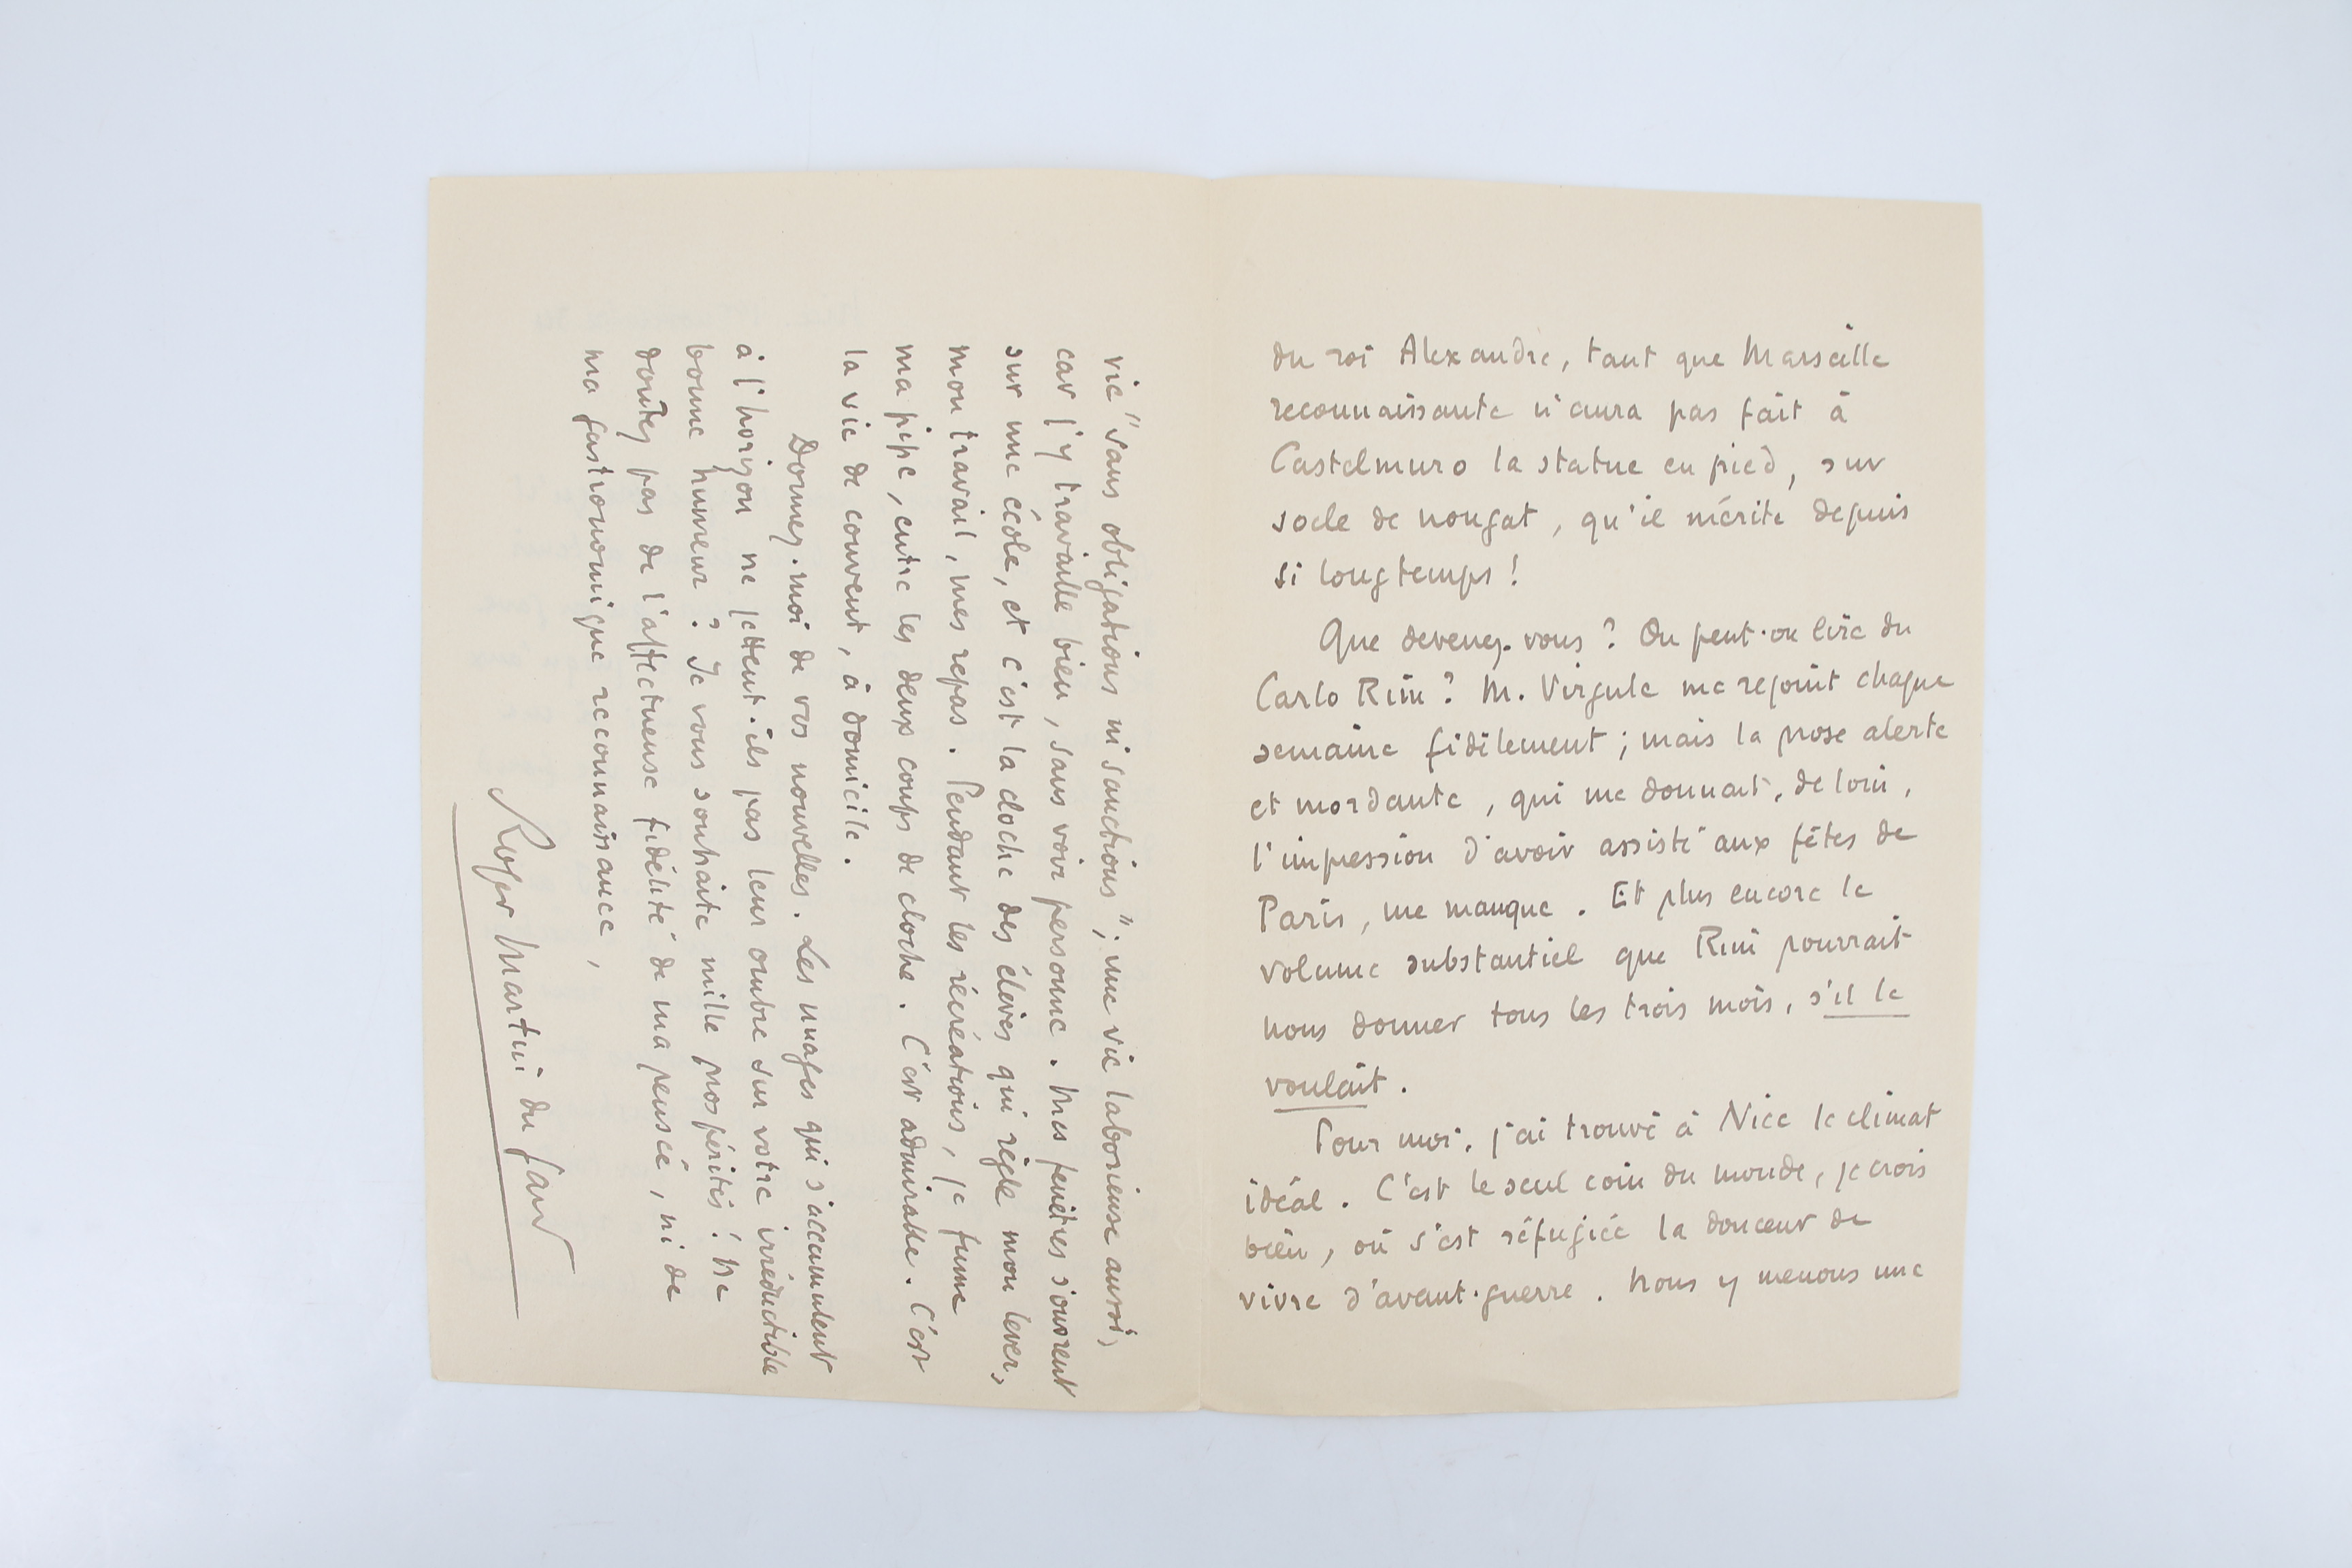 du roi Alexandre, tant que Marseille
reconnaissante n'aura pas fait à
Castelmuro la statue en pied, sur
socle de nougat, qu'il mérite depuis
si longtemps !
Que devenez-vous ? Ou peut-on lire du
Carlo Rim ? M. Virgule me rejouit chaque
semaine fidèlement ; mais la prose alerte
et mordante, qui me donnait, de loin,
l'impression d'avoir assisté aux fêtes de
Paris, me manque. Et plus encore le
volume substantiel que Rim pourrait
nous donner tous les trois mois, s'il le
voulait.
Pour moi, j'ai trouvé à Nice le climat
idéal. C'est le seul coin du monde, je crois
bien, où s'est réfugiée la douceur de
vivre d'avant-guerre. Nous y menons une
vie "sans obligations ni sanctions" ; une vie laborieuse aussi,
car j'y travaille bien, sans voir personne. Mes fenêtres s'ouvrent
sur une école, et c'est la cloche des élèves qui règle mon lever,
mon travail, mes repas. Pendant les récréations, je fume
ma pipe, entre les deux coups de cloche. C'est admirable. C'est
la vie de couvent, à domicile.
Donnez-moi de vos nouvelles. Les nuages qui s'accumulent
à l'horizon ne jettent-ils pas leur ombre sur votre irréductible
bonne humeur ? Je vous souhaite mille prospérités ! Ne
doutez pas de l'affectueuse fidélité de ma pensée, ni de
ma gastronomique reconnaissance,
Roger Martin du Gard